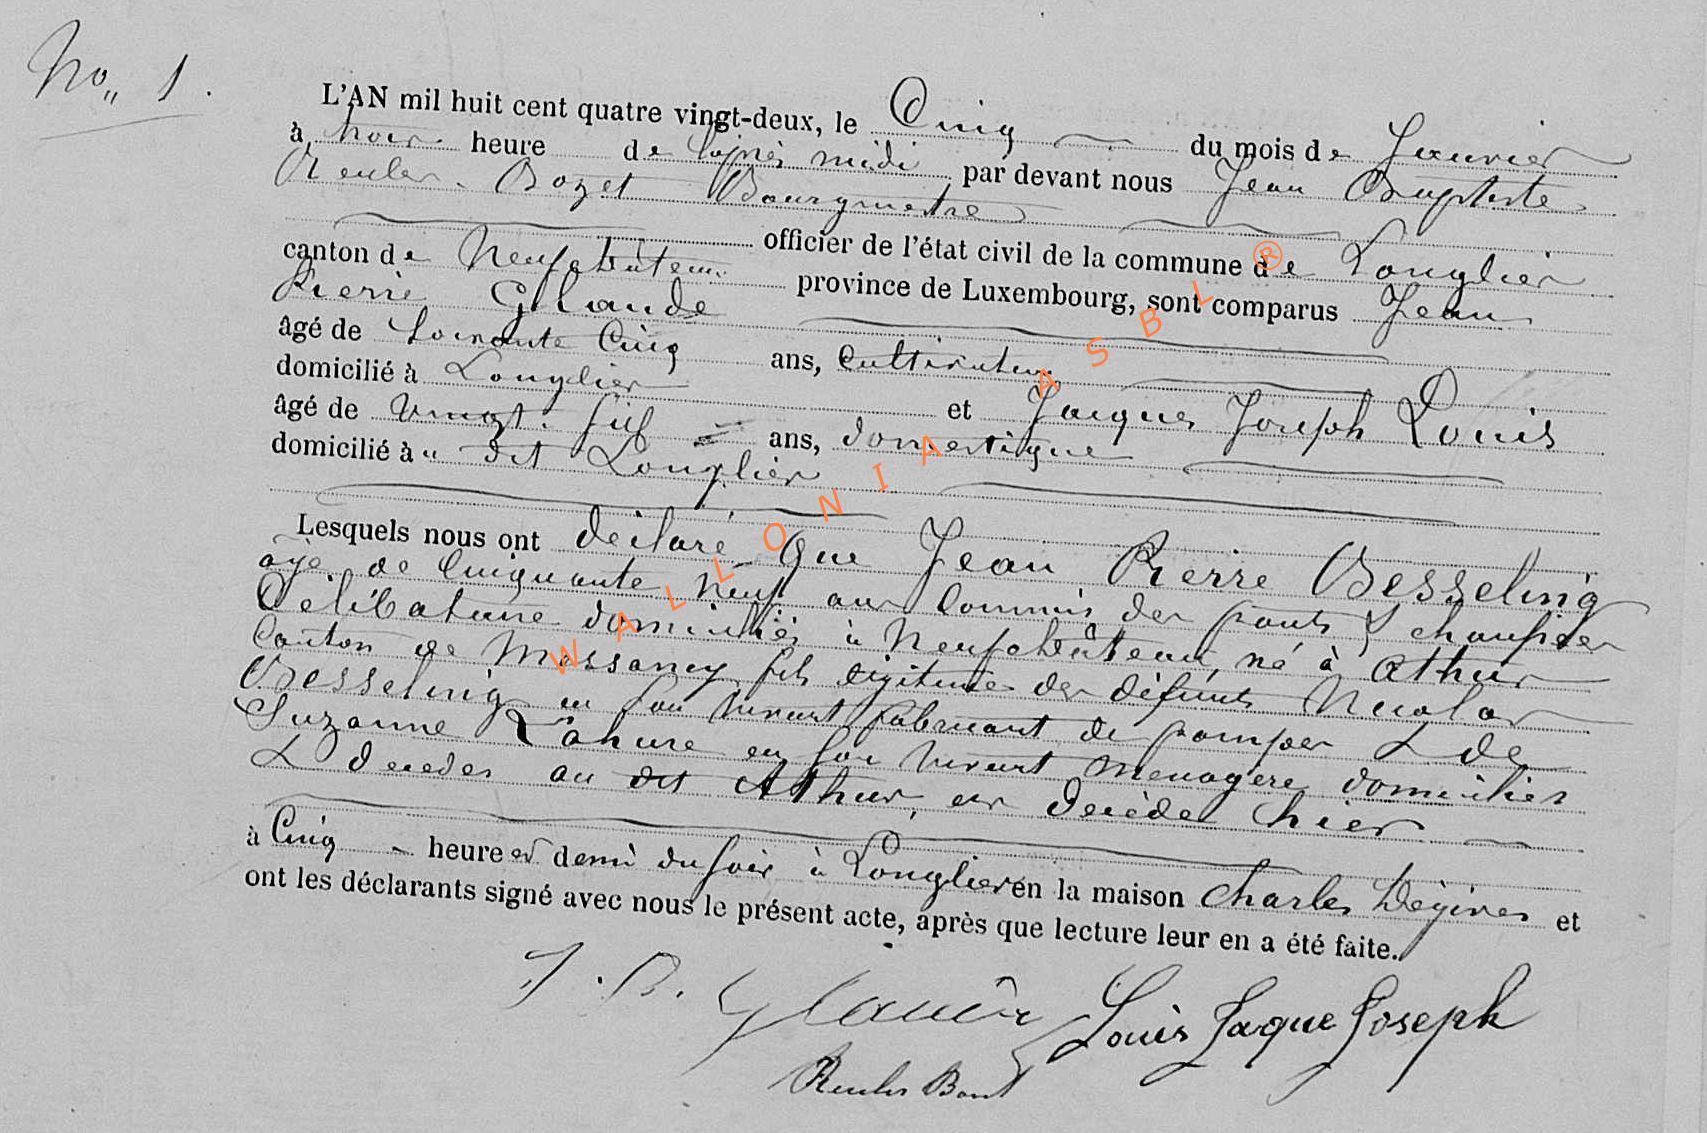 No 1.
L'AN mil huit cent quatre vingt-deux, le Cinq du mois de Janvier
à trois heure de l'après midi par devant nous Jean Baptiste
Reuler Bozet Bourgmestre
officier de l'état civil de la commune de Longlier
canton de Neufchâteau province de Luxembourg, sont comparus Jean
Pierre Glaude
âgé de Soixante Cinq ans, Cultivateur
domicilié à Longlier et Jacques Joseph Louis
âgé de Vingt ans, domestique
domicilié à dit Longlier
Lesquels nous ont déclaré que Jean Pierre Besseling
agé de Cinquante Neuf ans Commis des ponts & chaussées
Célibataire domicilié à Neufchâteau, né à Athus
Canton de Messancy fils légitime des défunts Nicolas
Besseling en son vivant fabricant de pompes & de
Suzanne Lahure en son vivant menagère domiciliés
& décédés au dit Athus, est décédé hier
à Cinq heure et demi du soir à Longlier en la maison Charles et
ont les déclarants signé avec nous le présent acte, après que lecture leur en a été faite.
J. P. Glaude Louis Jaque Joseph
WALLONIA ASBL ®